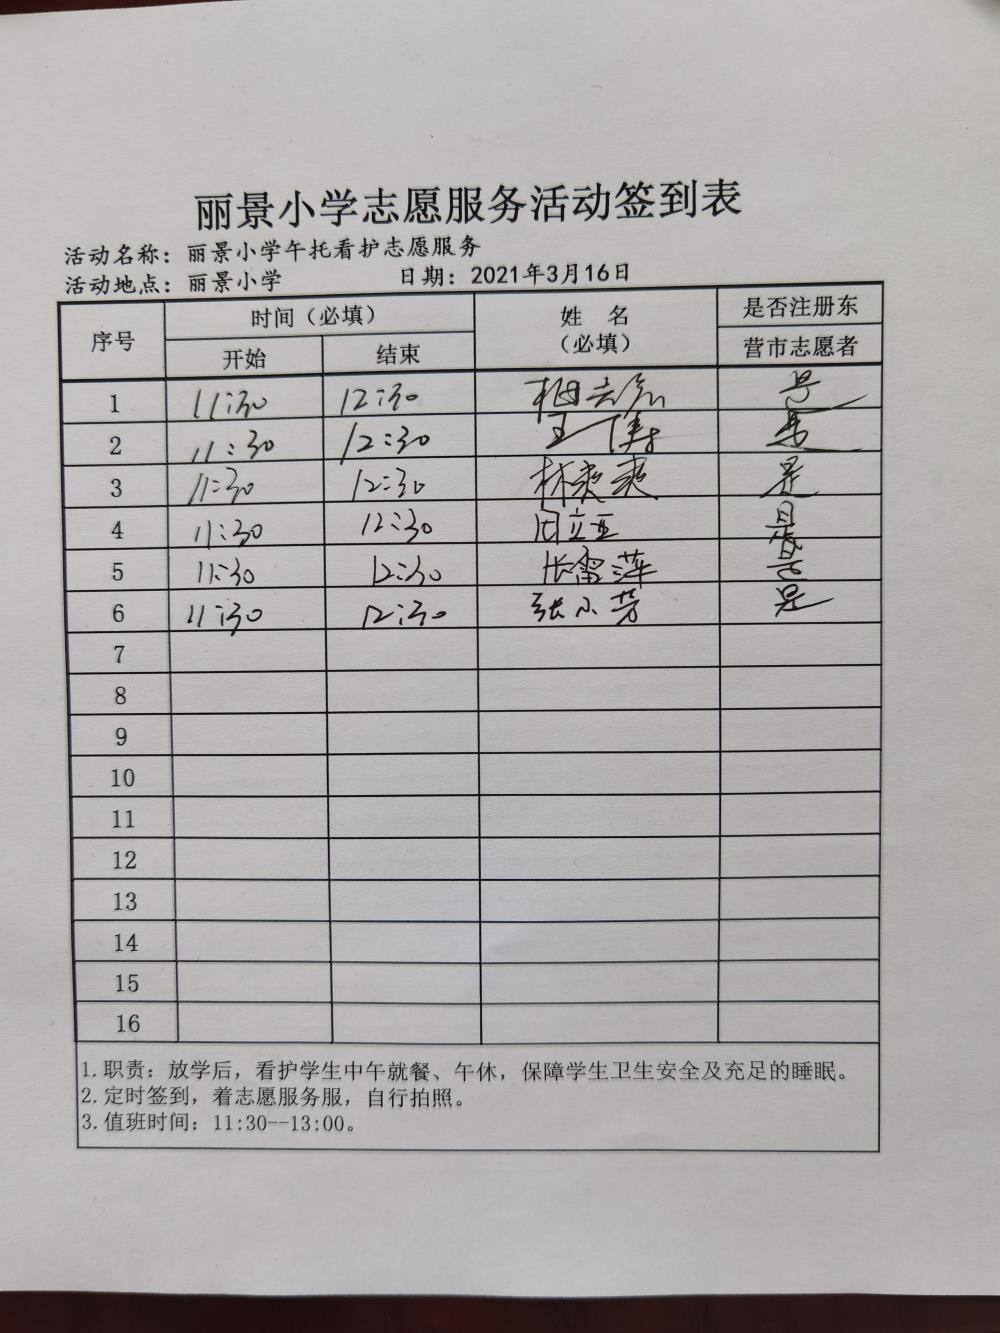 丽景小学志愿服务活动签到表
活动名称：丽景小学午托看护志愿服务
活动地点：丽景小学 日期：2021年3月16日
序号 时间（必填） 姓 名（必填） 是否注册东营市志愿者
开始 结束
1 11:30 12:30 是
2 11:30 12:30 王 是
3 11:30 12:30 林爽爽 是
4 11:30 12:30 周立亚 是
5 11:30 12:30 张雷萍 是
6 11:30 12:30 张小芳 是
7
8
9
10
11
12
13
14
15
16
1.职责：放学后，看护学生中午就餐、午休，保障学生卫生安全及充足的睡眠。
2.定时签到，着志愿服务服，自行拍照。
3.值班时间：11:30--13:00。